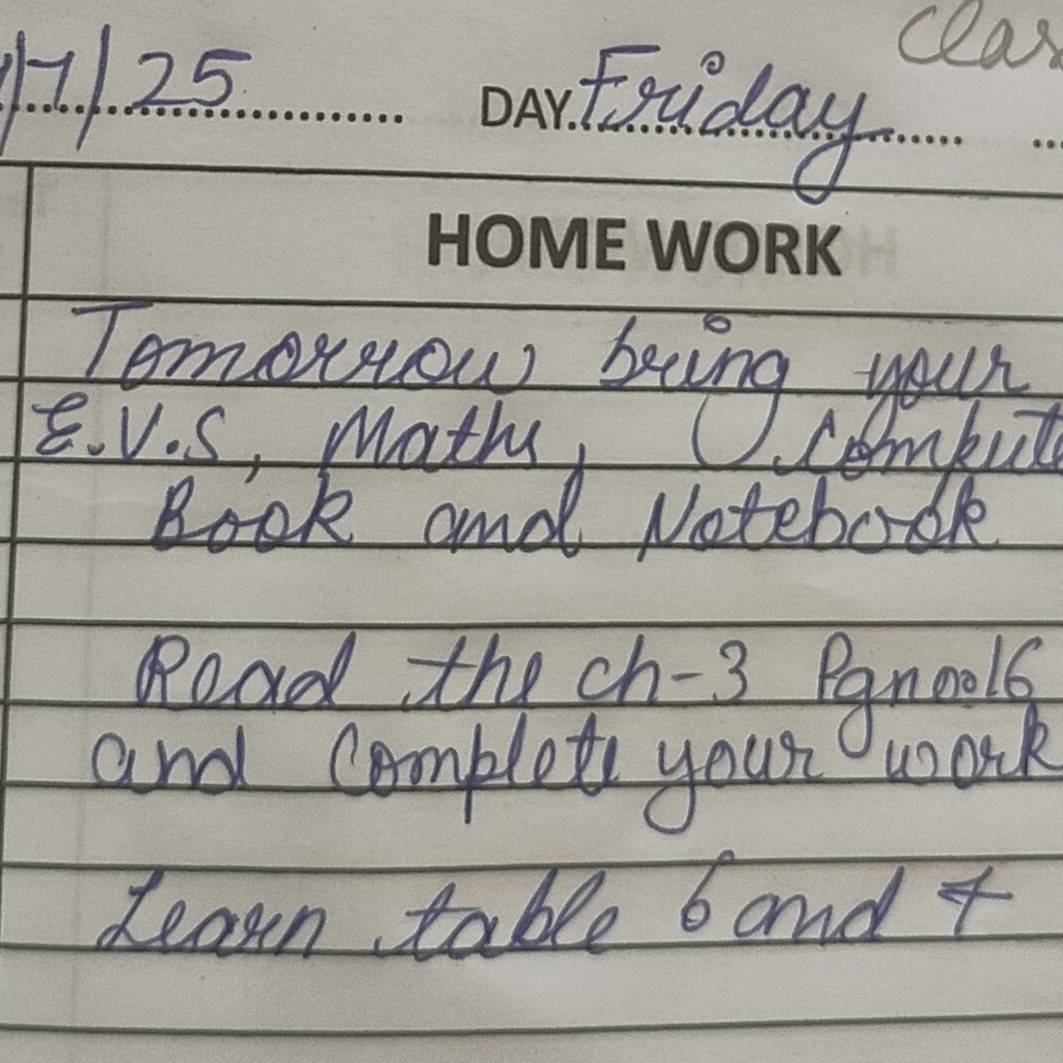 /7/25 DAY. Friday
HOME WORK
Tomorrow bring your
E.V.S, Maths, Comput
Book and Notebook
Read the ch-3 Pgno016
and Complete your work
Learn table 6 and 7